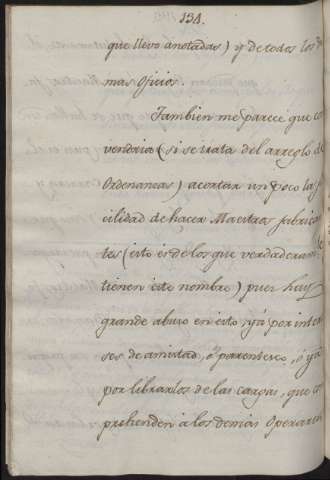 134.
que llevo anotadas) y de todos los de
mas oficios.
Tambien me parece que co
vendria (si se trata del arreglo de
Ordenanzas) acortar un poco la fa
cilidad de hacer Maestros fabrican
tes (esto és de los que verdaderamte
tienen este nombre) pues hay
grande abuso en esto, yá por inter
ses de amistad, ó parentesco, ó yá
por librarlos de las cargas, que co
prehenden á los demás Operarios